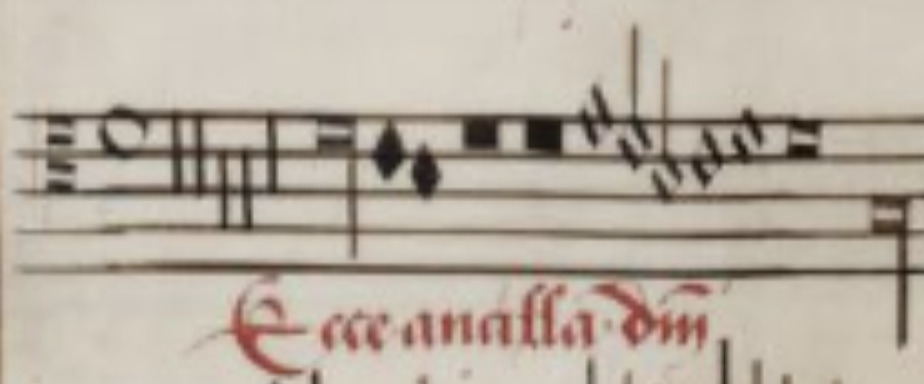 Ecce·ancilla·dm̄